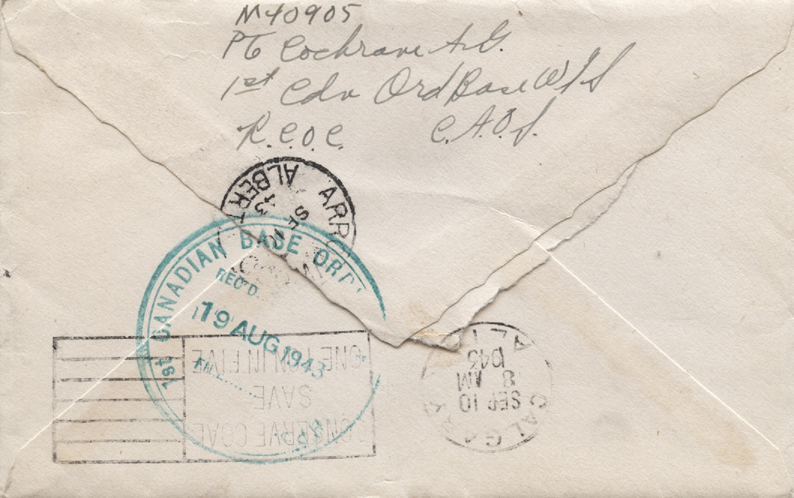 M40905
Pte Cochrane A.G.
1st Cdn Ord Base W/S
R.C.O.C. C.A.O.S.
ARRO
ALBERT
SE
1st CANADIAN BASE ORD
REC'D
19 AUG 1943
FILE
CONSERVE COAL
SAVE
ONE TON IN FIVE
CALGARY
SEP 10
8 AM
1943
ALTA